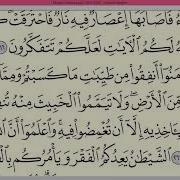 فَأَصَابَهَآ إِعْصَارٌ فِيهِ نَارٌ فَٱحْتَرَقَتْ
لَكُمُ ٱلْـَٔايَـٰتِ لَعَلَّكُمْ تَتَفَكَّرُونَ
مَنُوٓا۟ أَنفِقُوا۟ مِن طَيِّبَـٰتِ مَا كَسَبْتُمْ وَمِمَّآ
مِّنَ ٱلْأَرْضِ وَلَا تَيَمَّمُوا۟ ٱلْخَبِيثَ مِنْهُ
بِـَٔاخِذِيهِ إِلَّآ أَن تُغْمِضُوا۟ فِيهِ وَٱعْلَمُوٓا۟ أَنَّ
ٱلشَّيْطَـٰنُ يَعِدُكُمُ ٱلْفَقْرَ وَيَأْمُرُكُم بِٱلْفَ